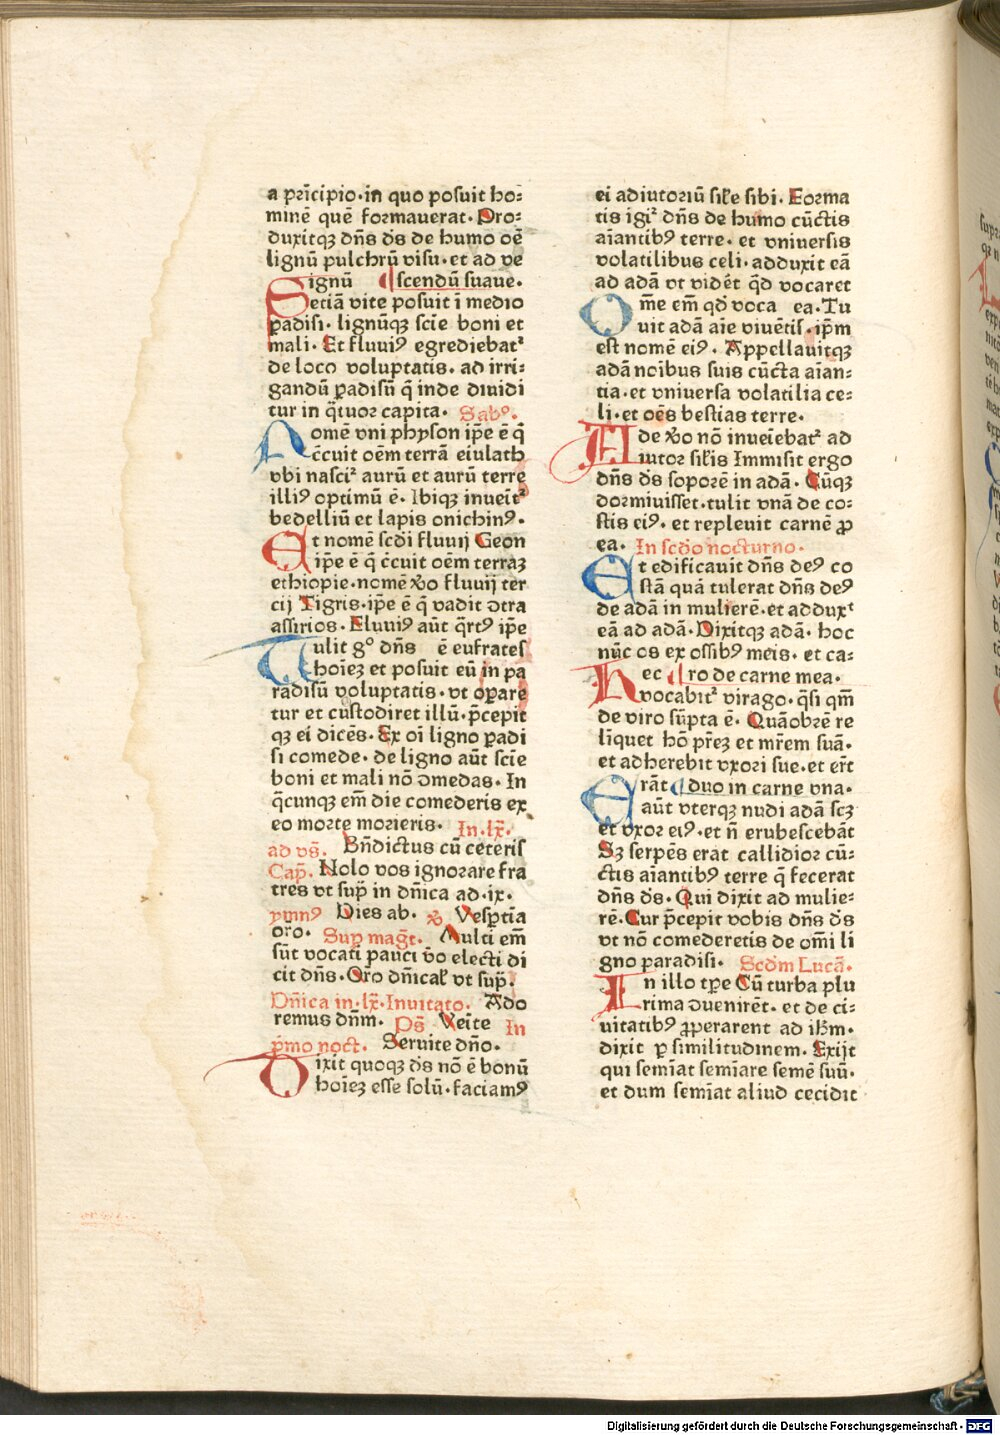 a prīcipio·in quo posuit ho⸗
minē quē formauerat· Pro⸗
duxitqꝫ dn̄s ds̄ de humo oē
lignū pulchrū visu·et ad ve
Signū ¶scendū suaue·
etiā vite posuit ī medio
ꝑadisi· lignūqꝫ scīe boni et
mali· Et fluuiꝰ egrediebat᷑
de loco voluptatis· ad irri⸗
gandū ꝑadisū q̄ inde diuidi
tur in q̄tuor capita· Sabꝰ·
Nomē vni physon ip̄e ē q̄
c̄cuit oēm terrā eiulath
vbi nasci᷑ aurū et aurū terre
illiꝰ optimū ē· Ibiqꝫ inueīt᷑
bedelliū et lapis onichinꝰ·
Et nomē scd̄i fluuij Geon
ip̄e ē q̄ c̄cuit oēm terraꝫ
ethiopie·nomē v̄o fluuij ter
cij Tigris·ip̄e ē q̄ vadit ↄtra
assirios· Fluuiꝰ aūt q̄rtꝰ ip̄e
Tulit gº dn̄s ē eufrates
hoīeꝫ et posuit eū in pa
radisū voluptatis· vt oꝑare
tur et custodiret illū·p̄cepit
qꝫ ei dicēs· Ex oī ligno ꝑadi
si comede· de ligno aūt scīe
boni et mali nō ↄmedas· In
q̄cunqꝫ em̄ die comederis ex
eo morte morieris· In·lx̄·
ad vs̄· Bn̄dictus cū ceteris
Cap̄· Nolo vos ignorare fra
tres vt sup̄ in dn̄ica ad·ix·
ymnꝰ Dies ab· ꝟ· Vesp̄tīa
or̄o· Sup maḡt· Multi em̄
sūt vocati pauci v̄o electi di
cit dn̄s· Or̄o dn̄ical̄ vt sup̄·
Dn̄ica in·lx̄·Inuitato· Ado
remus dn̄m· Ps̄ Veīte In
p̄mo noct· Seruite dn̄o·
Dixit quoqꝫ ds̄ nō ē bonū
hoīeꝫ esse solū·faciamꝰ
ei adiutoriū sil̄e sibi· Forma
tis igi᷑ dn̄s de humo cūctis
aīantibꝰ terre· et vniuersis
volatilibus celi·adduxit eā
ad adā vt vidēt q̄d vocaret
Om̄e em̄ qd̄ voca ea·Tu
uit adā aīe viuētis·ip̄m
est nomē eiꝰ· Appellauitqꝫ
adā noībus suis cūcta aīan⸗
tia·et vniuersa volatilia ce⸗
li·et oēs bestias terre·
Ade v̄o nō inueīebat᷑ ad
iutor sil̄is Immisit ergo
dn̄s ds̄ soporē in adā· Cūqꝫ
dormiuisset·tulit vnā de co⸗
stis eiꝰ·et repleuit carnē ꝓ
ea· In scd̄o nocturno·
Et edificauit dn̄s deꝰ co
stā quā tulerat dn̄s deꝰ
de adā in mulierē·et addux᷑
eā ad adā· Dixitqꝫ adā· hoc
nūc os ex ossibꝰ meis· et ca⸗
Hec ¶ro de carne mea·
vocabit᷑ virago·q̄si qm̄
de viro sūpta ē· Quāobrē re
līquet hō pr̄eꝫ et mr̄em suā·
et adherebit vxori sue·et er̄t
Erāt ¶duo in carne vna·
aūt vterqꝫ nudi adā scꝫ
et vxor eiꝰ·et n̄ erubescebāt
Sꝫ serpēs erat callidior cū⸗
ctis aīantibꝰ terre q̄ fecerat
dn̄s ds̄· Qui dixit ad mulie⸗
rē·Cur p̄cepit vobis dn̄s ds̄
vt nō comederetis de om̄i li
gno paradisi· Scd̄m Lucā·
In illo tp̄e Cū turba plu
rima ↄuenirēt· et de ci⸗
uitatibꝰ ꝓperarent ad ih̄m·
dixit ꝑ similitudinem· Exijt
qui semīat semīare semē suū·
et dum semīat aliud cecidit
Digitalisierung gefördert durch die Deutsche Forschungsgemeinschaft - DFG